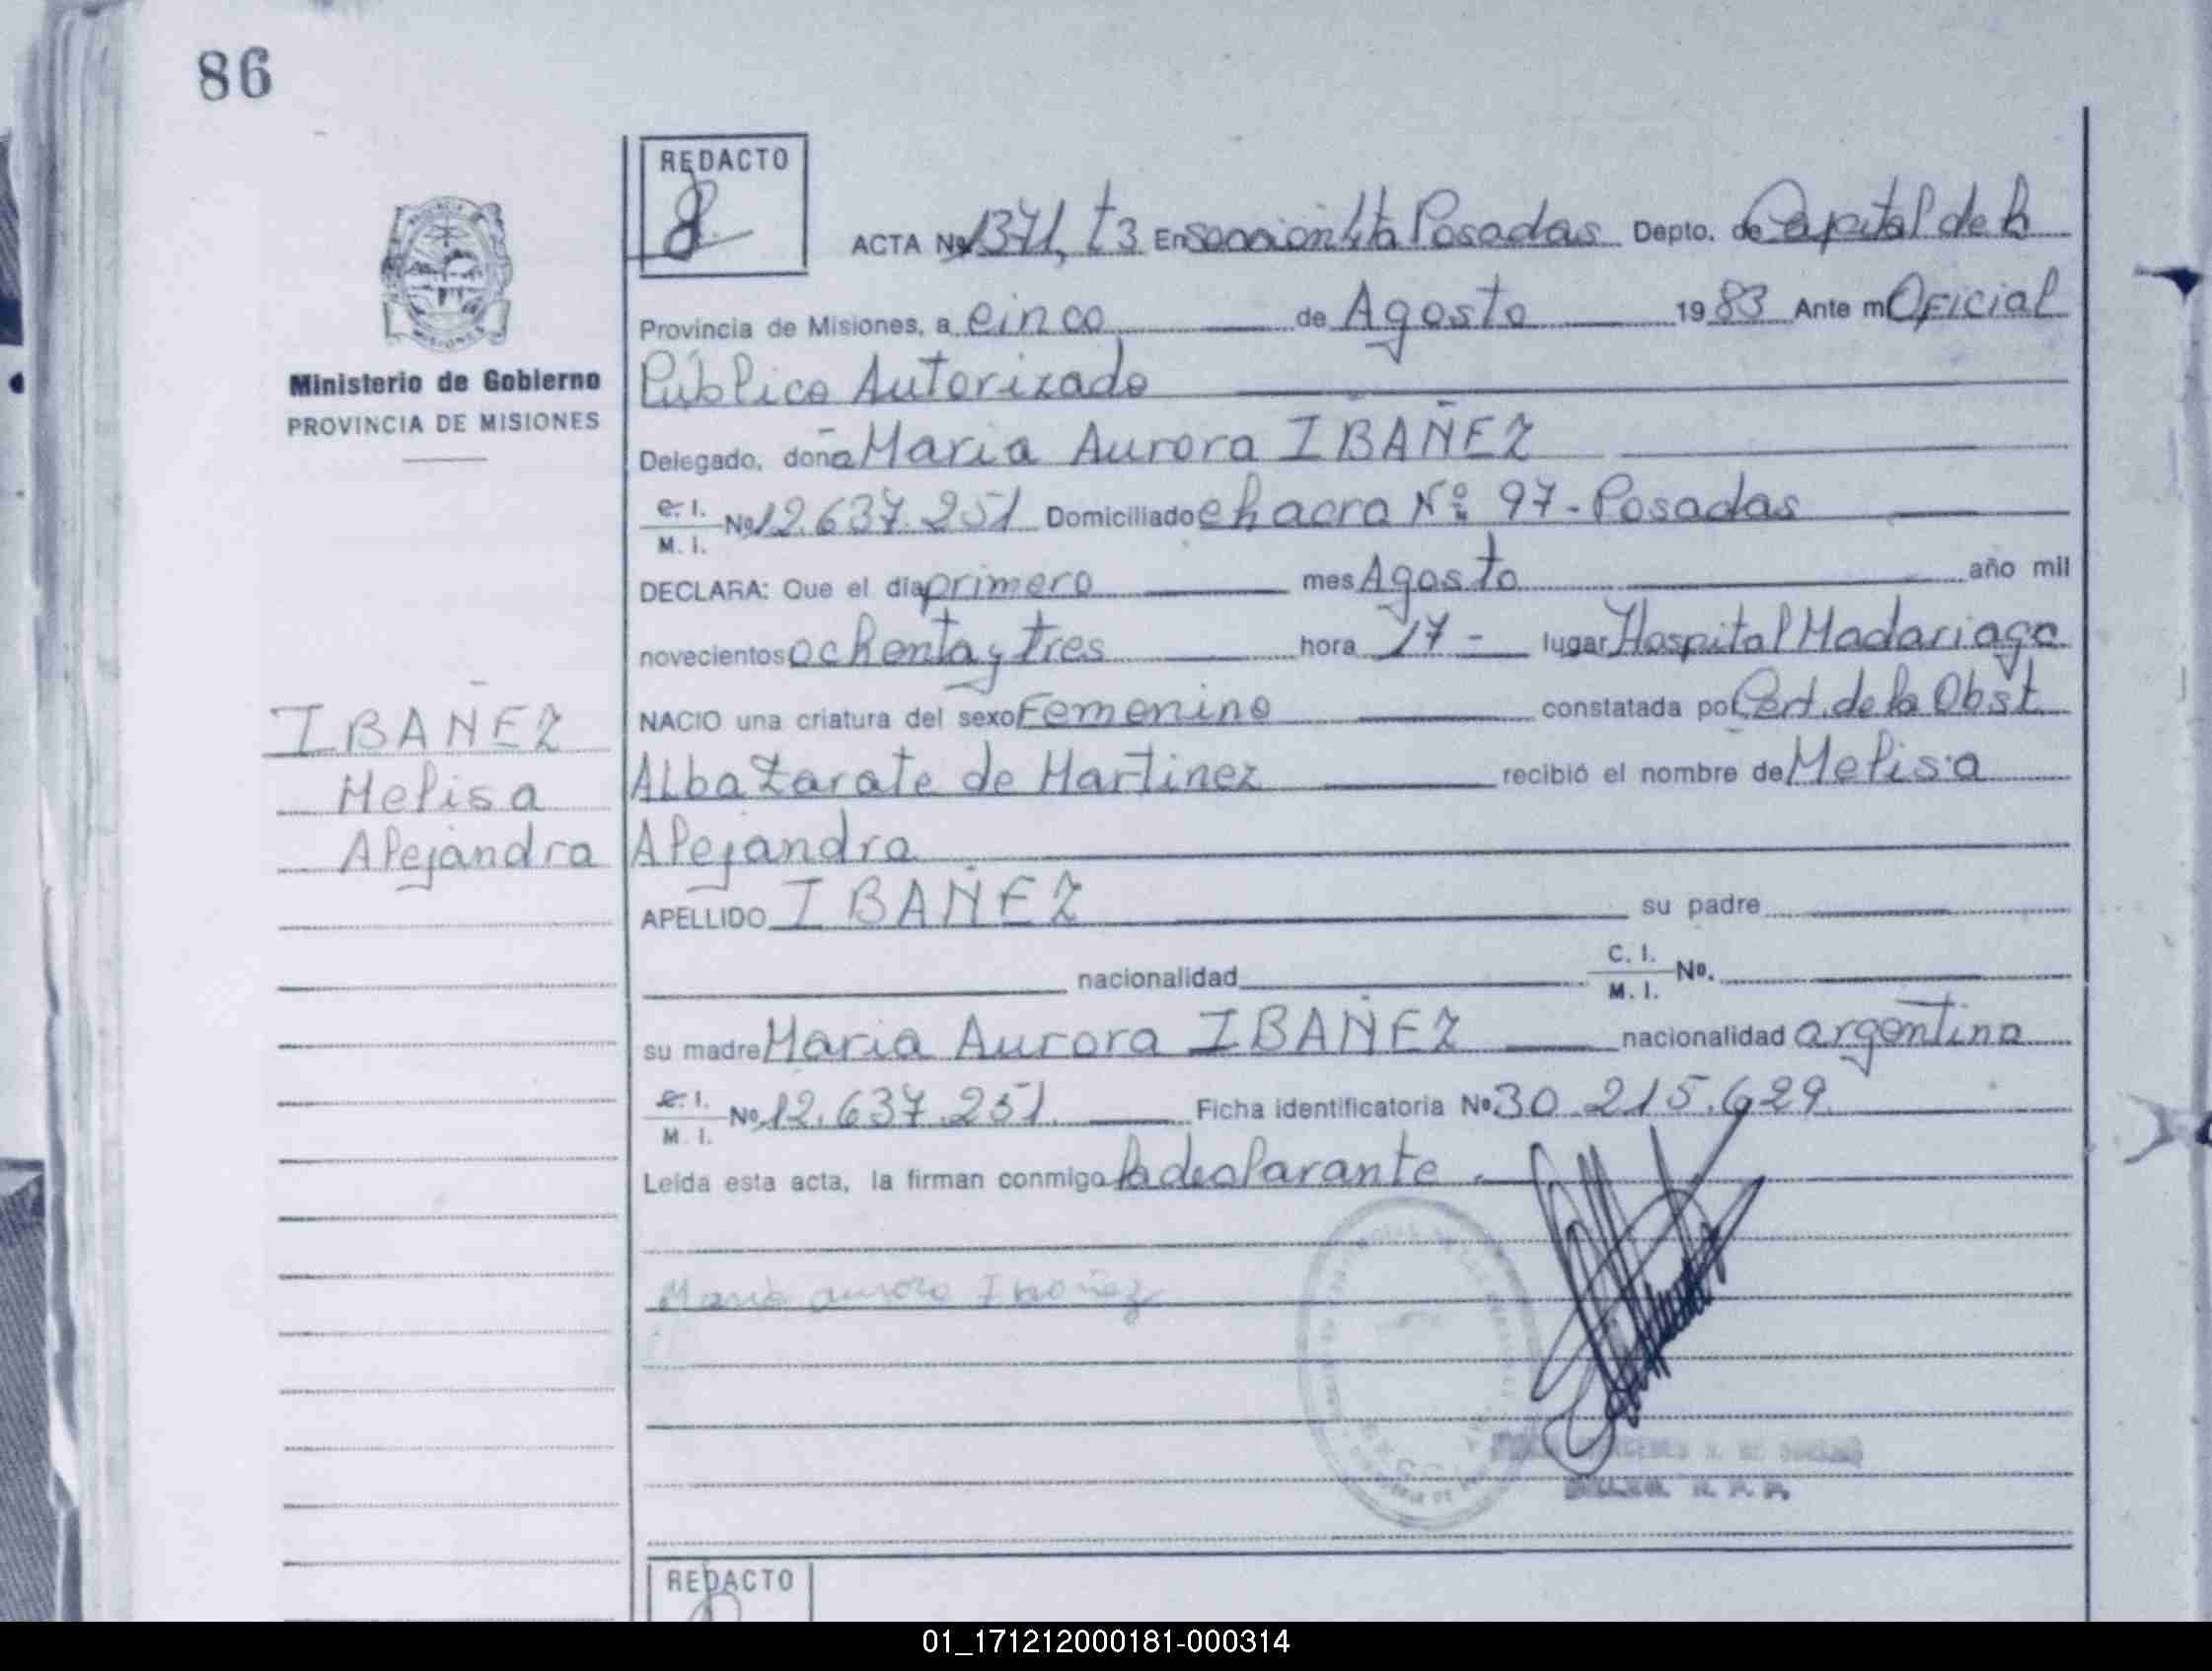 86
REDACTO
ACTA Nº 1371, t3 En sección 4ta Posadas Depto. de Capital de la
Provincia de Misiones, a cinco de Agosto 1983 Ante mi Oficial
Ministerio de Gobierno
PROVINCIA DE MISIONES
Público Autorizado
Delegado, doña Maria Aurora IBAÑEZ
C. I.
M. I.
Nº 12.637.251 Domiciliado chacra Nº 97 - Posadas
DECLARA: Que el día primero mes Agosto año mil
novecientos ochenta y tres hora 17 - lugar Hospital Madariaga
NACIO una criatura del sexo Femenino constatada por Cert. de la Obst
Alba Zarate de Martinez recibió el nombre de Melisa
Alejandra
IBAÑEZ
Melisa
Alejandra
APELLIDO IBAÑEZ su padre
nacionalidad C. I.
M. I. Nº.
su madre Maria Aurora IBAÑEZ nacionalidad argentina
C. I.
M. I.
Nº 12.637.251. Ficha identificatoria Nº 30.215.629.
Leída esta acta, la firman conmigo la declarante.
Maria aurora Ibañez
REDACTO
01_171212000181-000314